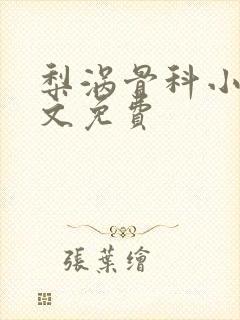 梨涡骨科小
文免費
張葉繪